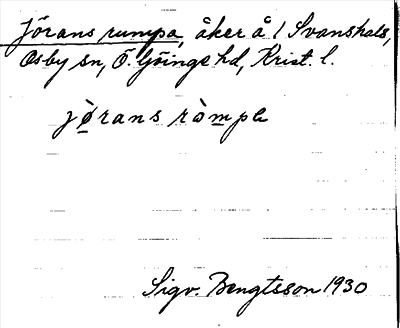 Jörans rumpa, åker å 1 Svanshals,
Osby sn, Ö. Göinge hd, Krist. l.
jø̀rans ràmpa
Sigv. Bengtsson 1930